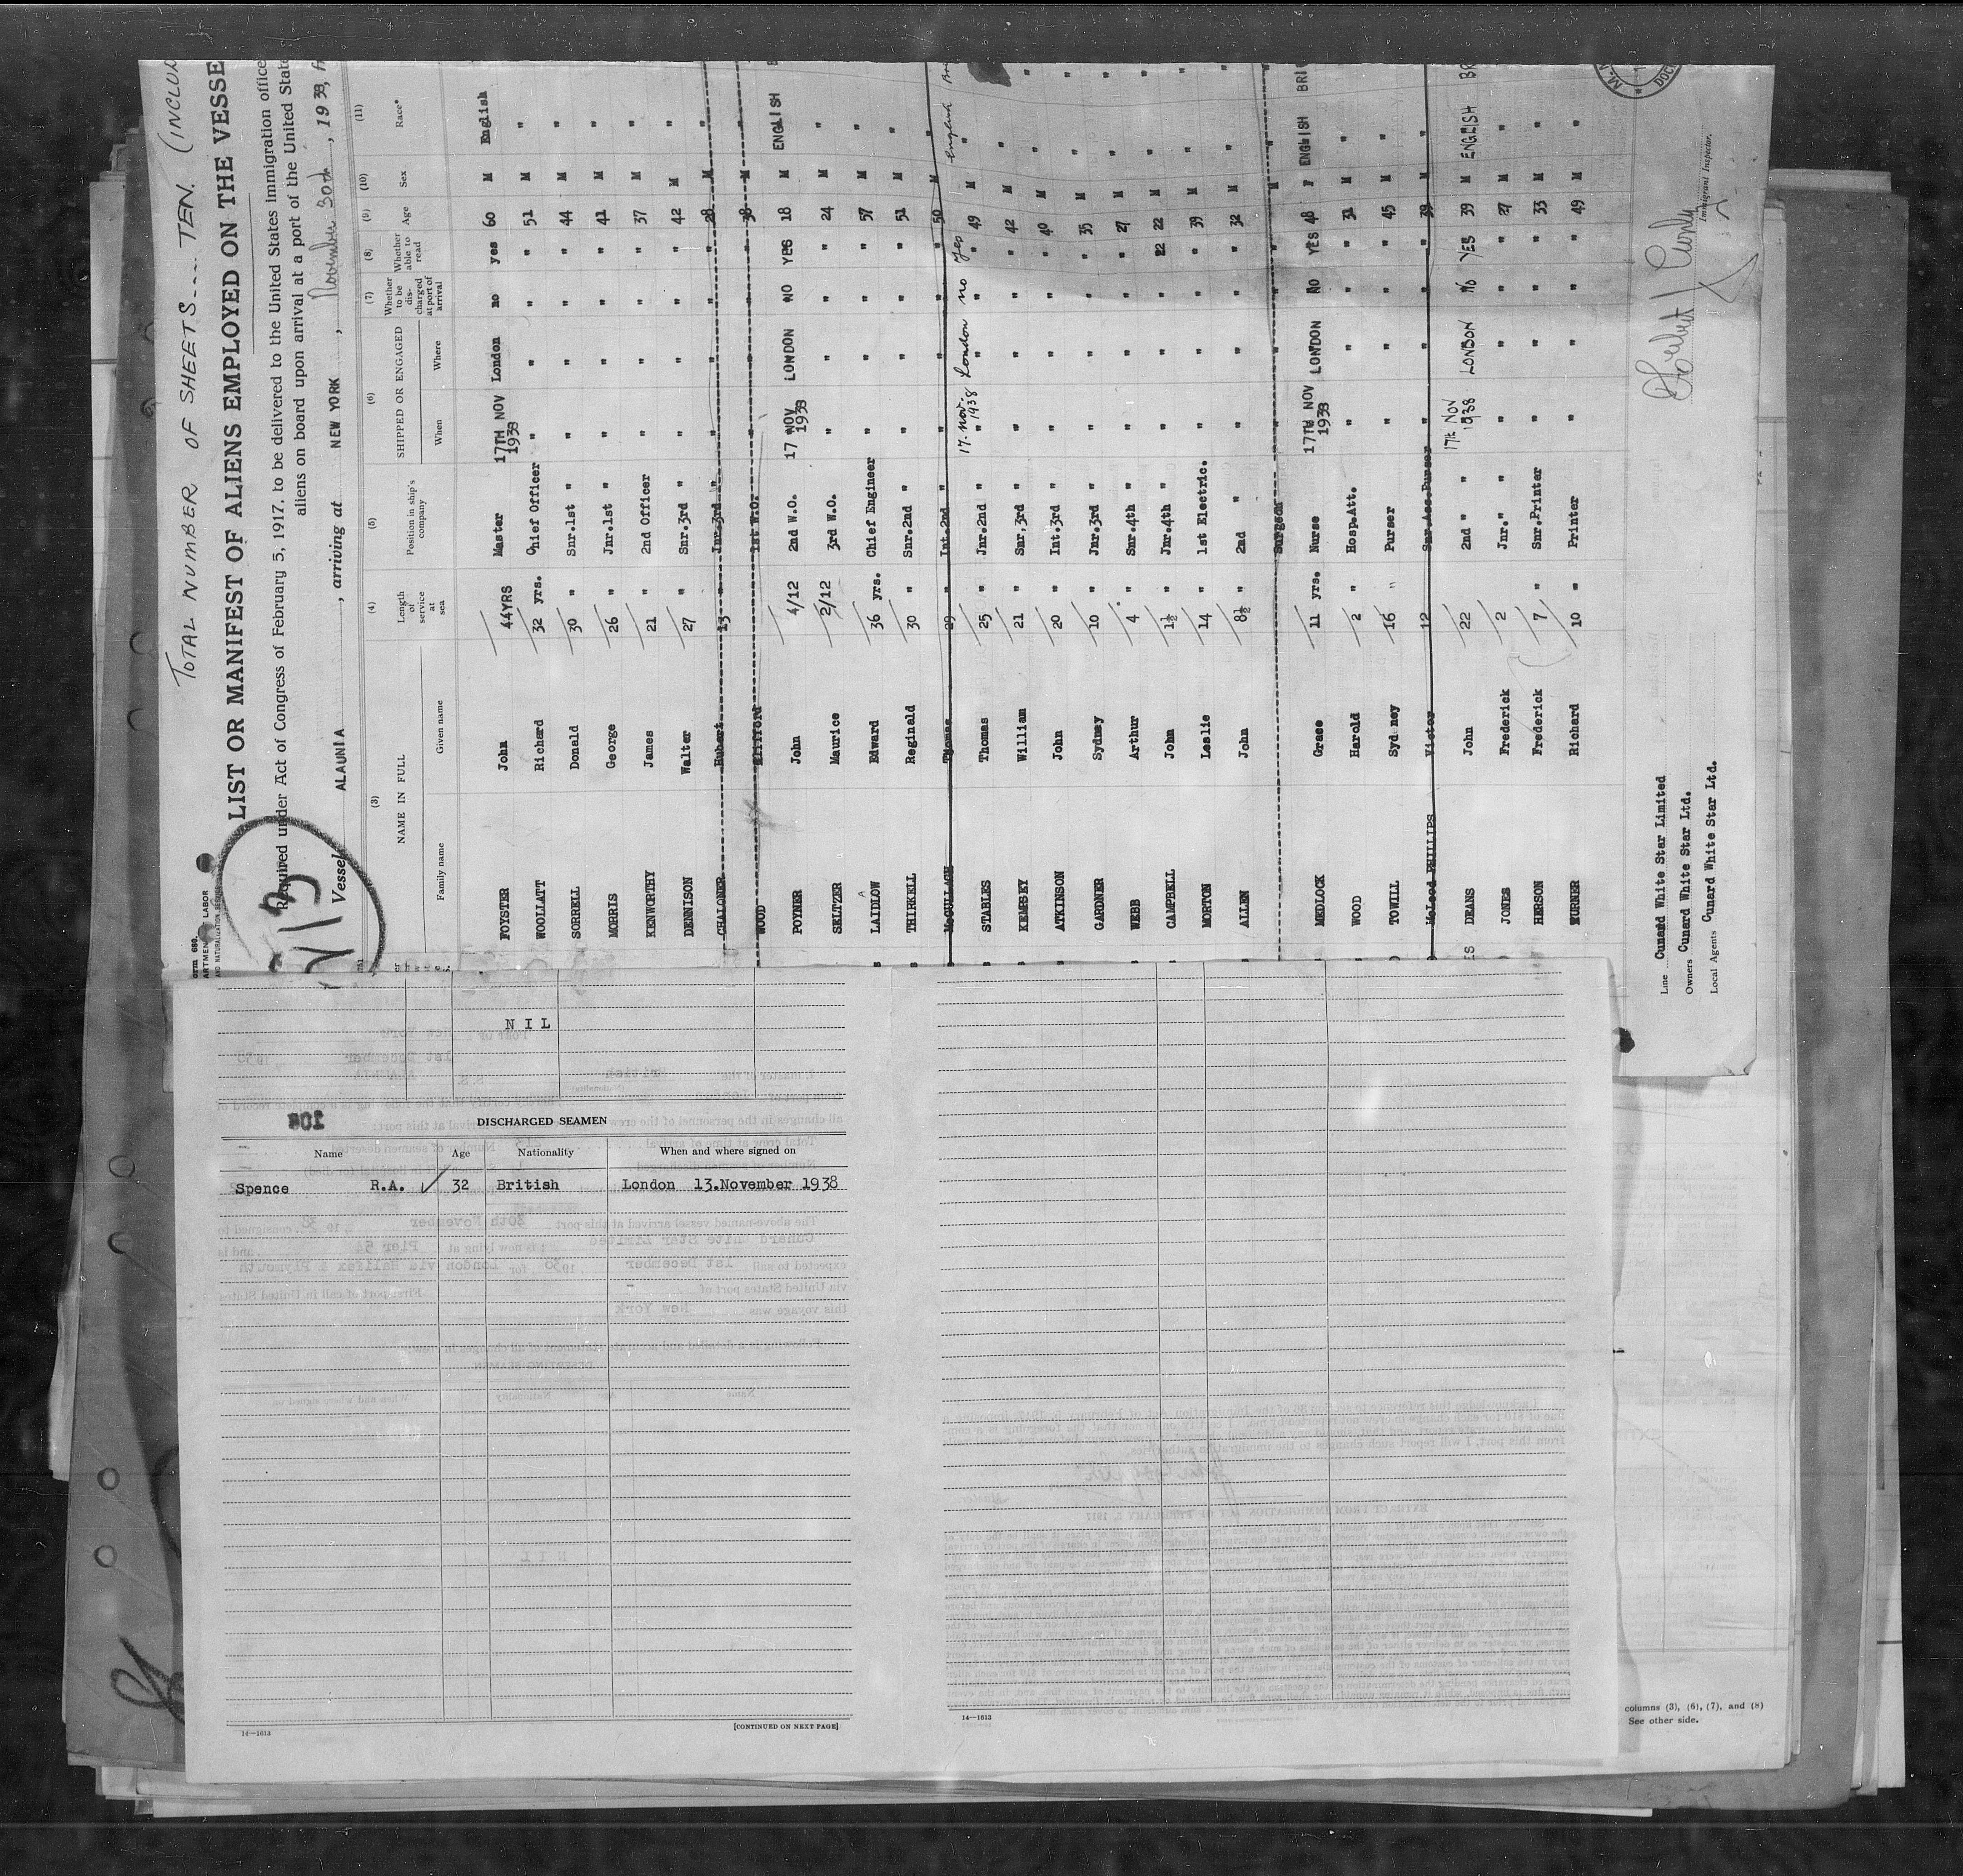 TOTAL NUMBER OF SHEETS.... TEN. (INCLU
LIST OR MANIFEST OF ALIENS EMPLOYED ON THE VESSE
Required under Act of Congress of February 5, 1917, to be delivered to the United States immigration office
aliens on board upon arrival at a port of the United State
Vessel ALAUNIA, arriving at NEW YORK, November 30th, 1938, fr
(3) (4) (5) (6) (7) (8) (9) (10) (11)
NAME IN FULL Length of service at sea Position in ship's company SHIPPED OR ENGAGED Whether to be discharged at port of arrival Whether able to read Age Sex Race*
Family name Given name When Where
FOYSTER John 44YRS Master 17TH NOV 1938 London no yes 60 M English
WOOLLATT Richard 32 yrs. Chief Officer " " " " 51 M "
SORRELL Donald 30 " Snr.1st " " " " " 44 M "
MORRIS George 26 " Jnr.1st " " " " " 41 M "
KENWORTHY James 21 " 2nd Officer " " " " 37 M "
DENNISON Walter 27 " Snr.3rd " " " " " 42 M "
CHALONER Hubert 13 " Jnr.3rd " " " " " 28 M "
WOOD Clifford 1st W.O. 38 M "
POYNER John 4/12 2nd W.O. 17 NOV 1938 LONDON NO YES 18 M ENGLISH
SELTZER Maurice 2/12 3rd W.O. " " " " 24 M "
LAIDLOW Edward 36 yrs. Chief Engineer " " " " 57 M "
THIRKELL Reginald 30 " Snr.2nd " " " " " 51 M "
McCULLAGH Thomas 29 " Int.2nd " " " " 50 M
STABLES Thomas 25 " Jnr.2nd " 17.nov. 1938 London no yes 49 M english
KEMPSEY William 21 " Snr.3rd " " " " " 42 M "
ATKINSON John 20 " Int.3rd " " " " " 40 M "
GARDNER Sydney 10 " Jnr.3rd " " " " " 35 M "
WEBB Arthur 4 " Snr.4th " " " " " 27 M "
CAMPBELL John 1½ " Jnr.4th " " " " 22 22 M "
MORTON Leslie 14 " 1st Electric. " " " " 39 M "
ALLEN John 8½ " 2nd " " " " " 32 M "
Surgeon
MEDLOCK Grace 11 yrs. Nurse 17TH NOV 1938 LONDON NO YES 48 F ENGLISH BRI
WOOD Harold 2 " Hosp.Att. " " " " 31 M "
TOWILL Sydney 16 " Purser " " " " 45 M "
McLeod PHILLIPS Victor 12 Snr.Ass.Purser " " " " 39 M "
DEANS John 22 2nd " " 17th Nov 1938 LONDON No YES 39 M ENGLISH BR
JONES Frederick 2 Jnr." " " " " " 27 M "
HERSON Frederick 7 " Snr.Printer " " " " 33 M "
Richard 10 " Printer " " " " 49 M "
Line Cunard White Star Limited
Owners Cunard White Star Ltd.
Local Agents Cunard White Star Ltd.
Immigrant Inspector.
NIL
DISCHARGED SEAMEN
Name Age Nationality When and where signed on
Spence R.A. ✓ 32 British London 13.November 1938
14—1613
[CONTINUED ON NEXT PAGE]
14—1613
columns (3), (6), (7), and (8)
See other side.